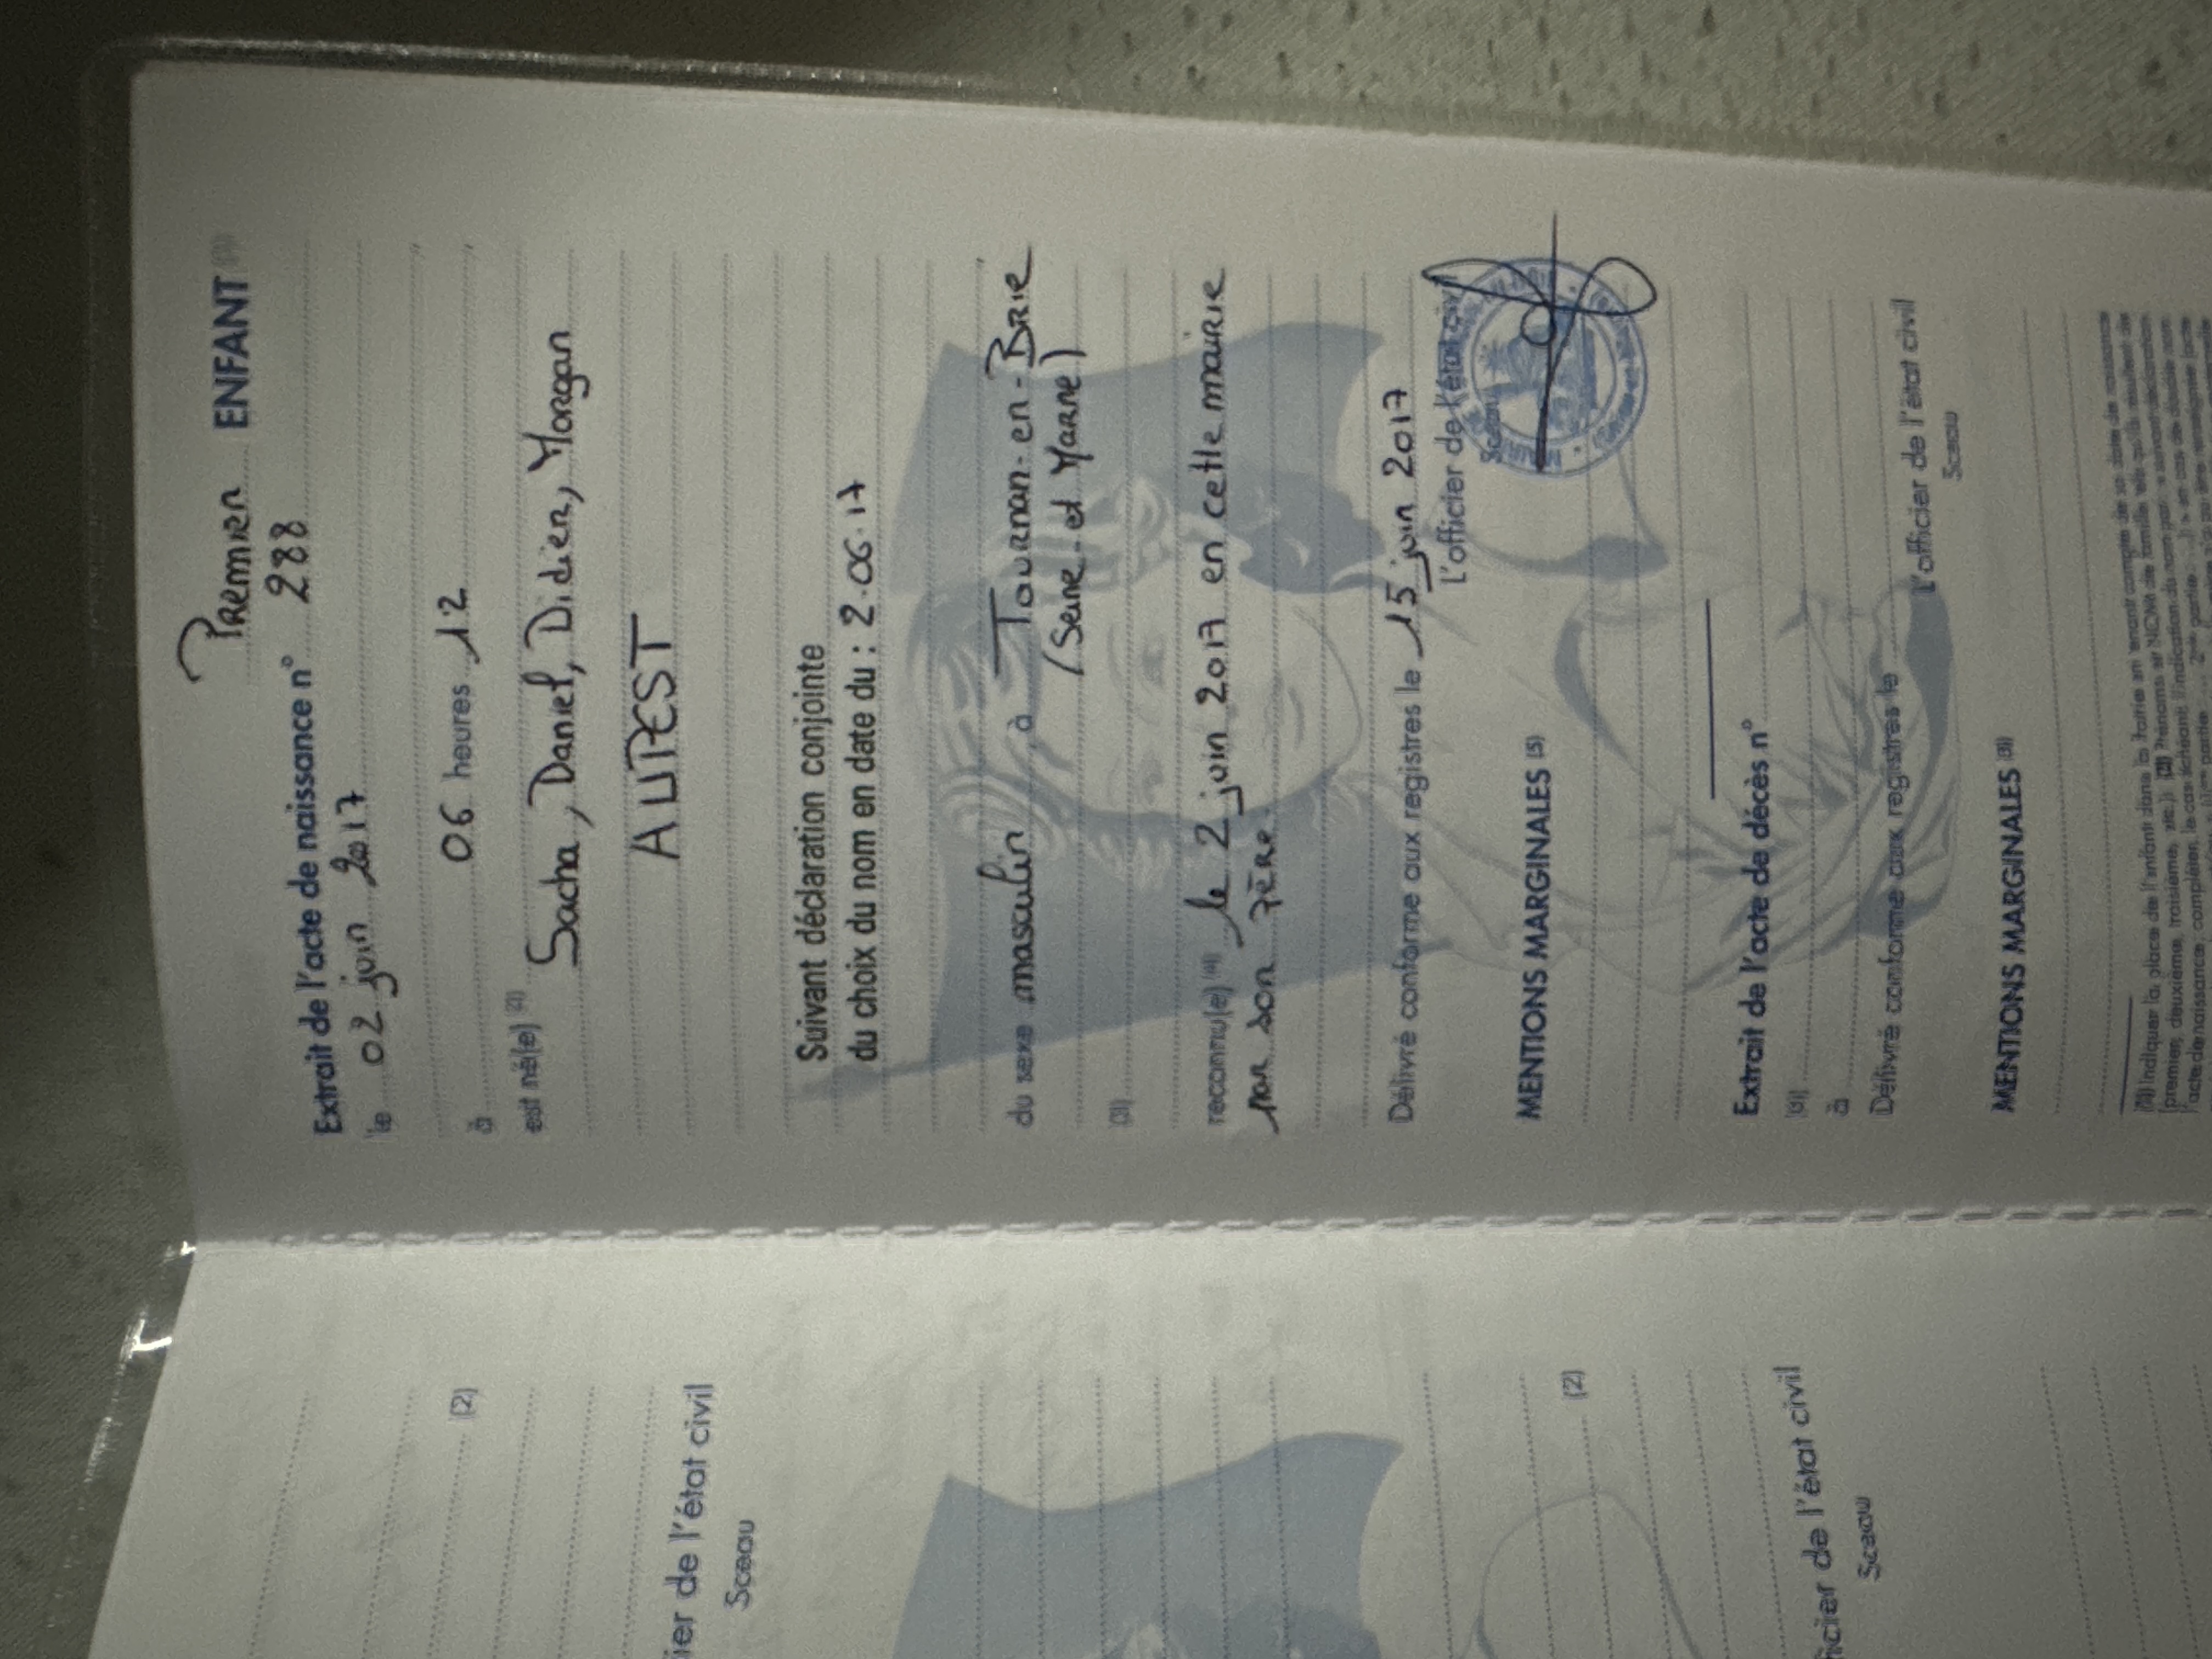 Premier ENFANT (1)
Extrait de l'acte de naissance n° 288
le 02 juin 2017
à 06 heures 12
est né(e) (2) Sacha, Daniel, Didier, Morgan
AUPEST
Suivant déclaration conjointe
du choix du nom en date du : 2.06.17
du sexe masculin à Tournan-en-Brie
(Seine-et Marne)
(3)
reconnu(e) (4) le 2 juin 2017 en cette mairie
par son Père.
Délivré conforme aux registres le 15 juin 2017
L'officier de l'état civil
Sceau
MENTIONS MARGINALES (5)
Extrait de l'acte de décès n°
(3)
à
Délivré conforme aux registres le
L'officier de l'état civil
Sceau
MENTIONS MARGINALES (3)
(1) Indiquer la place de l'enfant dans la fratrie en tenant compte de sa date de naissance
(premier, deuxième, troisième, etc.). (2) Prénoms et NOM de famille tels qu'ils résultent de
(2)
ier de l'état civil
Sceau
(2)
ficier de l'état civil
Sceau